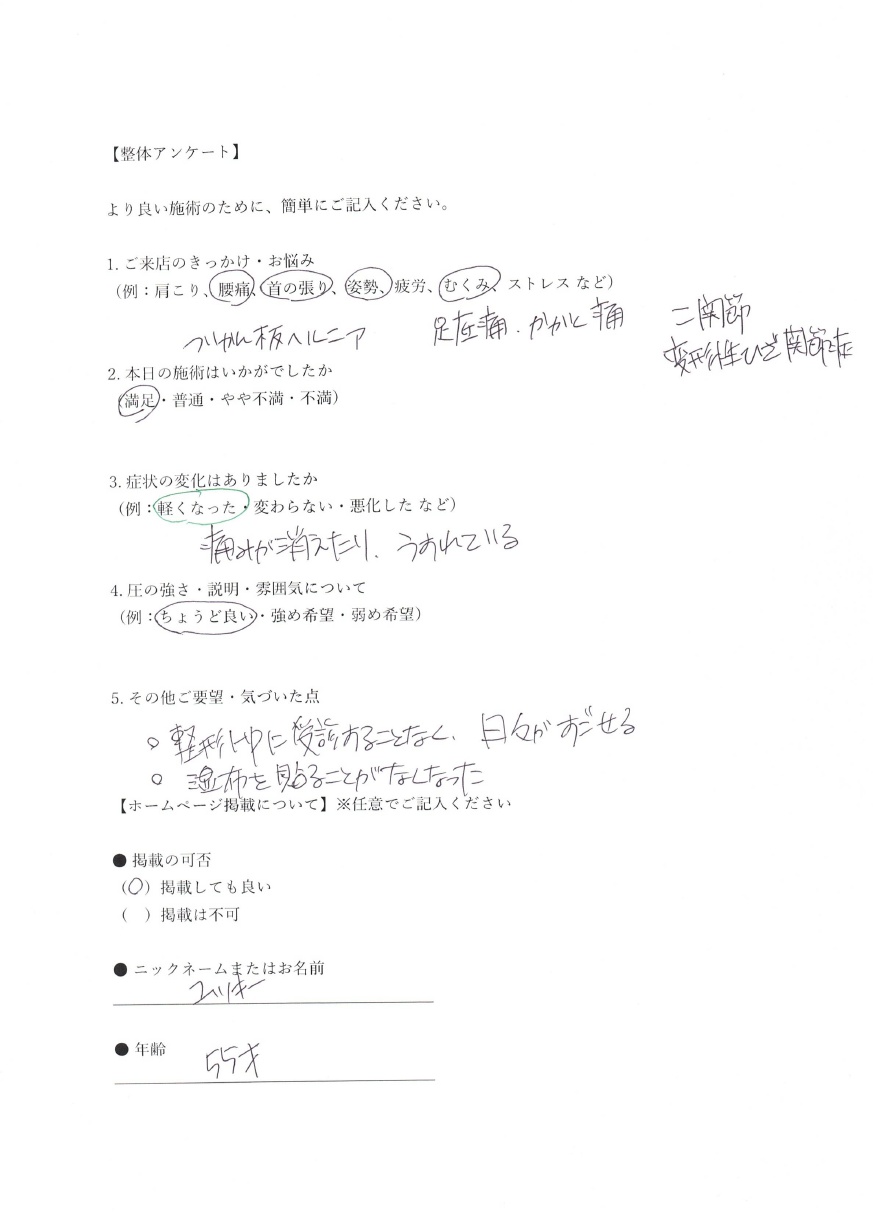 【整体アンケート】
より良い施術のために、簡単にご記入ください。
1. ご来店のきっかけ・お悩み
（例：肩こり、腰痛、首の張り、姿勢、疲労、むくみ、ストレス など）
ついかん板ヘルニア 足底痛・かかと痛 二関節
変形性ひざ関節症
2. 本日の施術はいかがでしたか
（満足・普通・やや不満・不満）
3. 症状の変化はありましたか
（例：軽くなった・変わらない・悪化した など）
痛みが消えたり、うすれている
4. 圧の強さ・説明・雰囲気について
（例：ちょうど良い・強め希望・弱め希望）
5. その他ご要望・気づいた点
○ 整形外中に受診することなく、日々がすごせる
○ 湿布を貼ることがなくなった
【ホームページ掲載について】※任意でご記入ください
● 掲載の可否
（○）掲載しても良い
（ ）掲載は不可
● ニックネームまたはお名前
● 年齢
55才